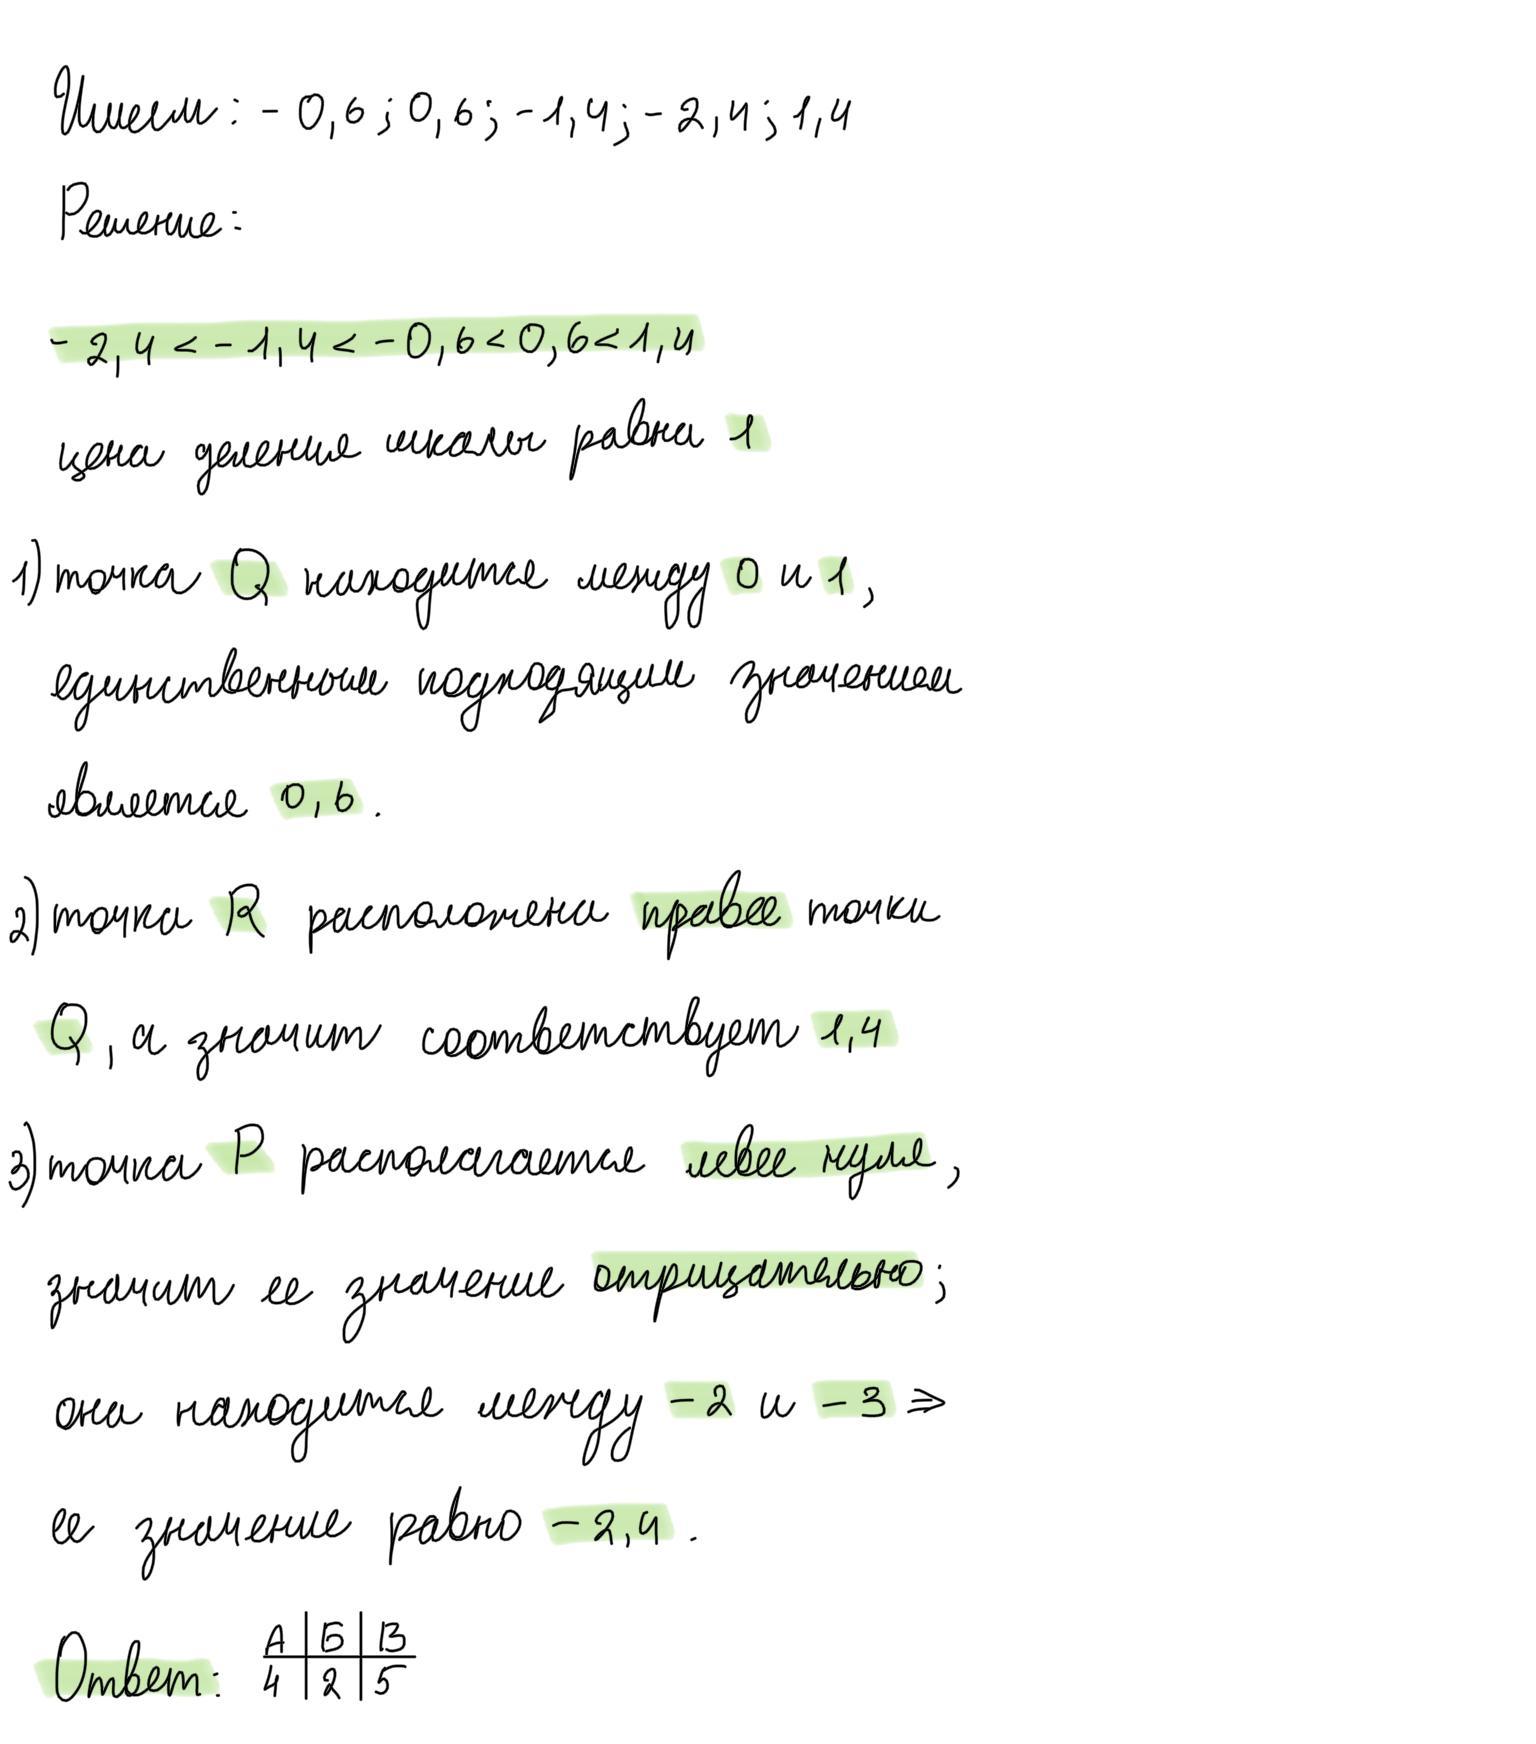 Имеем: - 0,6; 0,6; -1,4; -2,4; 1,4
Решение:
-2,4 < -1,4 < -0,6 < 0,6 < 1,4
цена деления шкалы равна 1
1) точка Q находится между 0 и 1,
единственным подходящим значением
является 0,6.
2) точка R расположена правее точки
Q, а значит соответствует 1,4
3) точка P располагается левее нуля,
значит ее значение отрицательно;
она находится между -2 и -3 ⇒
ее значение равно -2,4.
Ответ: А | Б | В
4 | 2 | 5